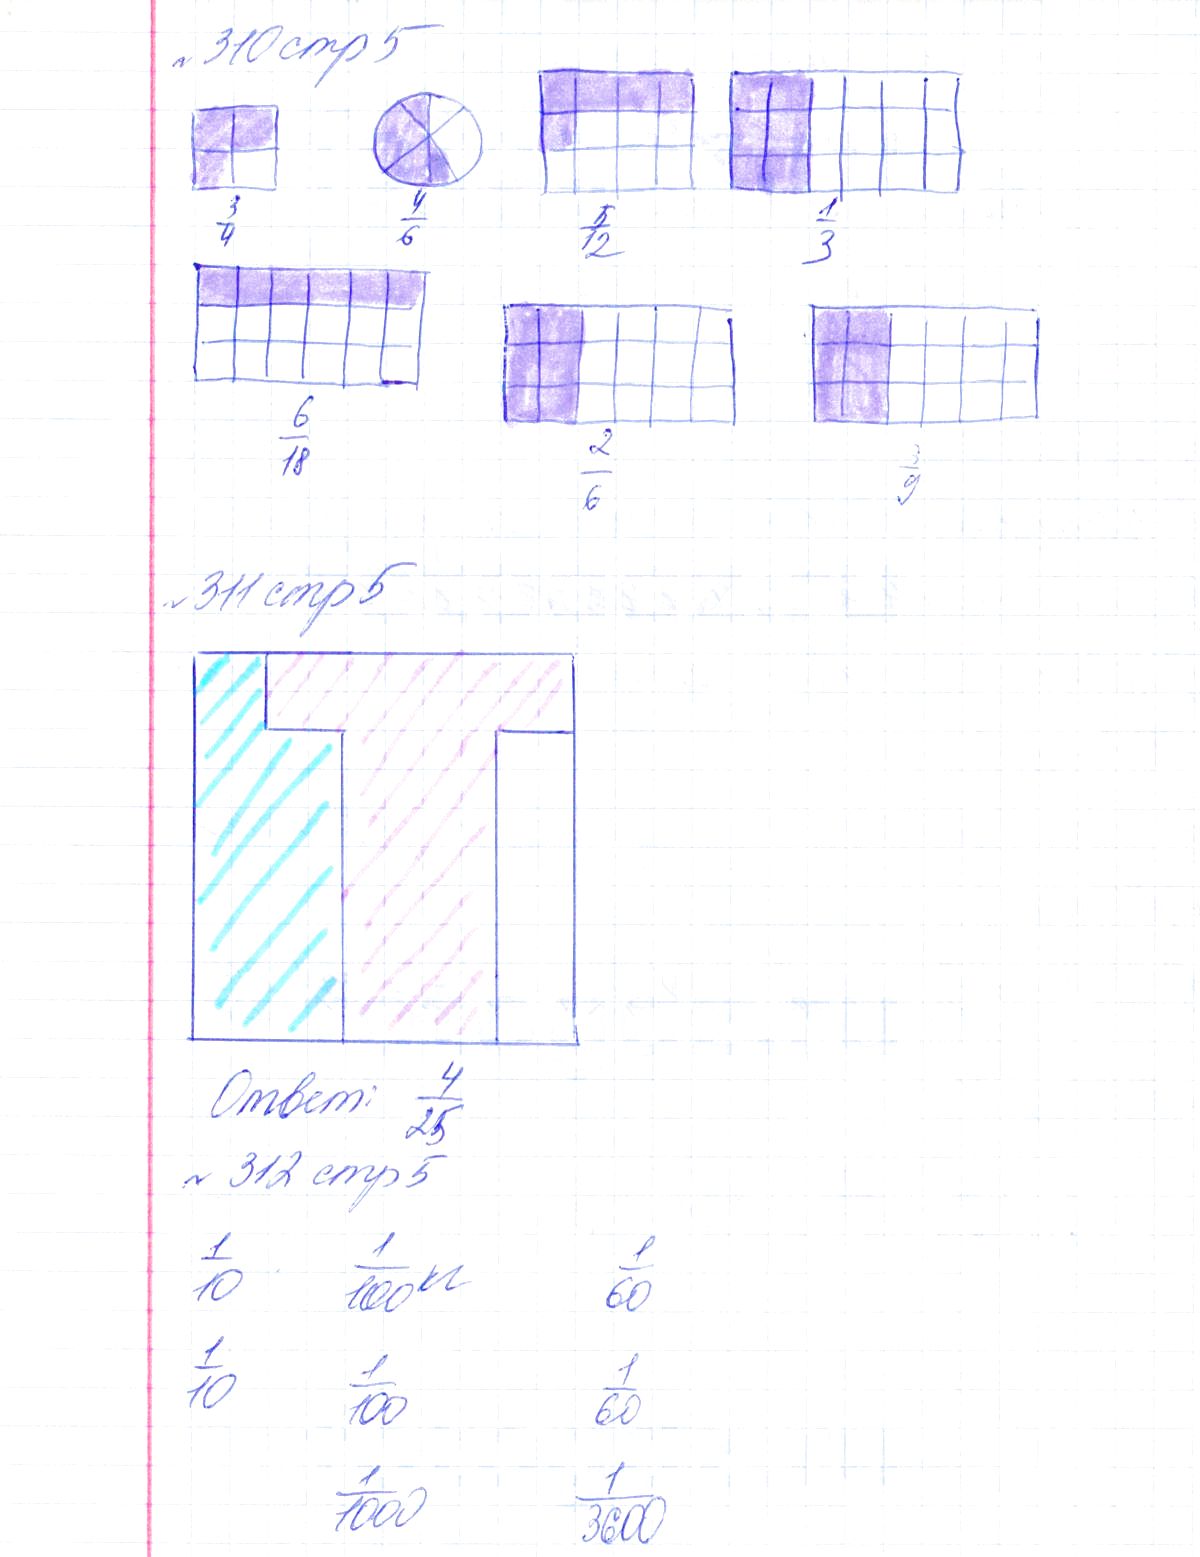 ~ 310 стр 5
3/4 4/6 5/12 1/3
6/18 2/6 3/9
~ 311 стр 5
Ответ: 4/25
~ 312 стр 5
1/10 1/100 кг 1/60
1/10 1/100 1/60
1/1000 1/3600